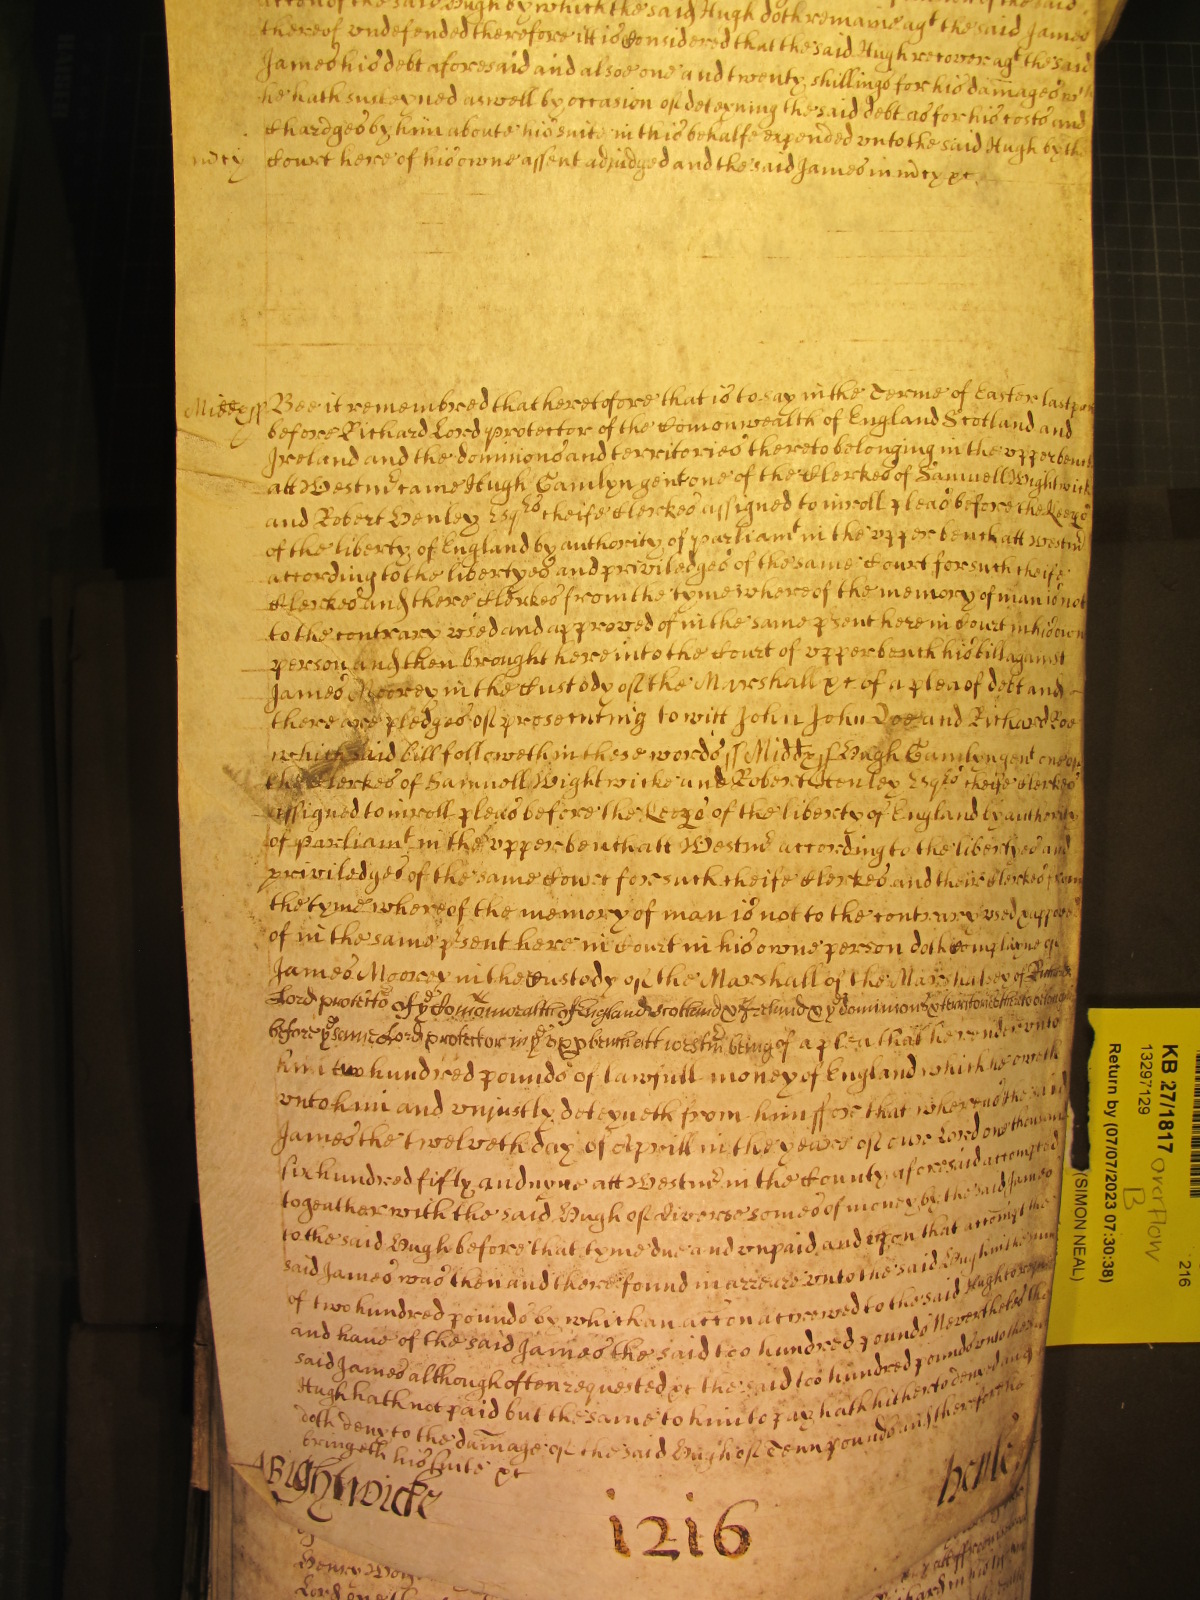 accon of the said Hugh by which the said Hugh doth remaine agt the said James
thereof vndefended therefore itt is Considered that the said Hugh recover agt the said
James his debt aforesaid and alsoe one and twenty shillings for his damages wch
he hath susteyned aswell by occasion of deteyning the said debt as for his costs and
Chardges by him aboute his suite in this behalfe expended vnto the said Hugh by the
Court here of his owne assent adiudged and the said James in mcy &c
mcy
Middx ss Bee it remembred that heretofore that is to say in the Terme of Easter last past
before Richard Lord protector of the Comonwealth of England Scotland and
Ireland and the dominions and territories thereto belonging in the vpper bench
att Westmr came Hugh Gamlyn gent one of the Clerkes of Samuell Wightwick
and Robert Henley Esqrs cheife Clerkes assigned to inroll pleas before the Keeps
of the liberty of England by authority of parliamt in the vpper bench att Westmr
according to the libertyes and priviledges of the same Court for such cheife
Clerkes and there Clerkes from the tyme whereof the memory of man is not
to the contrary vsed and approved of in the same psent here in Court in his own
person and then brought here into the Court of vpper bench his bill against
James Moorey in the Custody of the Marshall &c of a plea of debt and
there are pledges of prosecuting to witt John John Doe and Richard Roe
which said Bill followeth in these words ss Middx ss Hugh Gamlyn gent one of
the Clerkes of Samuell Wightwicke and Robert Henley Esqrs cheife Clerkes
assigned to inroll pleas before the Keeps of the liberty of England by authority
of parliamt in the vpper bench att Westmr according to the libertyes and
priviledges of the same Court for such cheife Clerkes and their Clerkes from
the tyme whereof the memory of man is not to the contrary vsed & approved
of in the same psent here in Court in his owne person doth Complayne of
James Moorey in the Custody of the Marshall of the Marshalsey of Richard
Lord protector of ye Comonwealth of England Scotland & Ireland & ye dominions & territories thereto belonging
before ye same Lord protector in ye vpp bench att westmr being of a plea that he render vnto
him two hundred pounds of lawfull money of England which he oweth
vnto him and vniustly deteyneth from him ff for that whereas the said
James the twelveth day of Aprill in the yeare of our Lord one thousand
six hundred fifty and nyne att Westmr in the County aforesaid accompted
togeather with the said Hugh of diverse somes of money by the said James
to the said Hugh before that tyme due and vnpaid and vpon that accompt the
said James was then and there found in arreare vnto the said Hugh in the sum
of two hundred pounds by which an accon accrewed to the said Hugh to require
and haue of the said James the said too hundred pounds Nevertheles the
said James although often requested &c the said too hundred pounds vnto the said
Hugh hath not paid but the same to him to pay hath hitherto denyed and
doth deny to the damage of the said Hugh of Tenn pounds and therefore he
bringeth his suite &c
Wightwicke
henley
1216
Henry
KB 27/1817
overflow
B
13297129
216
Return by (07/07/2023 07:30:38)
(SIMON NEAL)